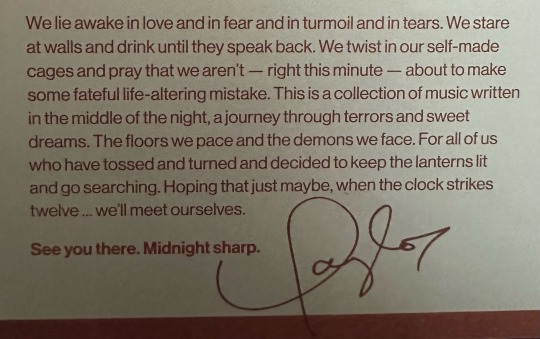 We lie awake in love and in fear and in turmoil and in tears. We stare
at walls and drink until they speak back. We twist in our self-made
cages and pray that we aren't — right this minute — about to make
some fateful life-altering mistake. This is a collection of music written
in the middle of the night, a journey through terrors and sweet
dreams. The floors we pace and the demons we face. For all of us
who have tossed and turned and decided to keep the lanterns lit
and go searching. Hoping that just maybe, when the clock strikes
twelve ... we'll meet ourselves.
See you there. Midnight sharp.
Taylor